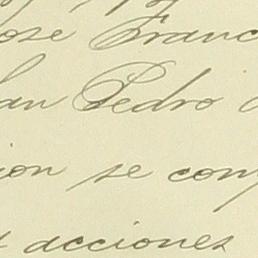 ose Franc
an Pedro
ion se con
acciones